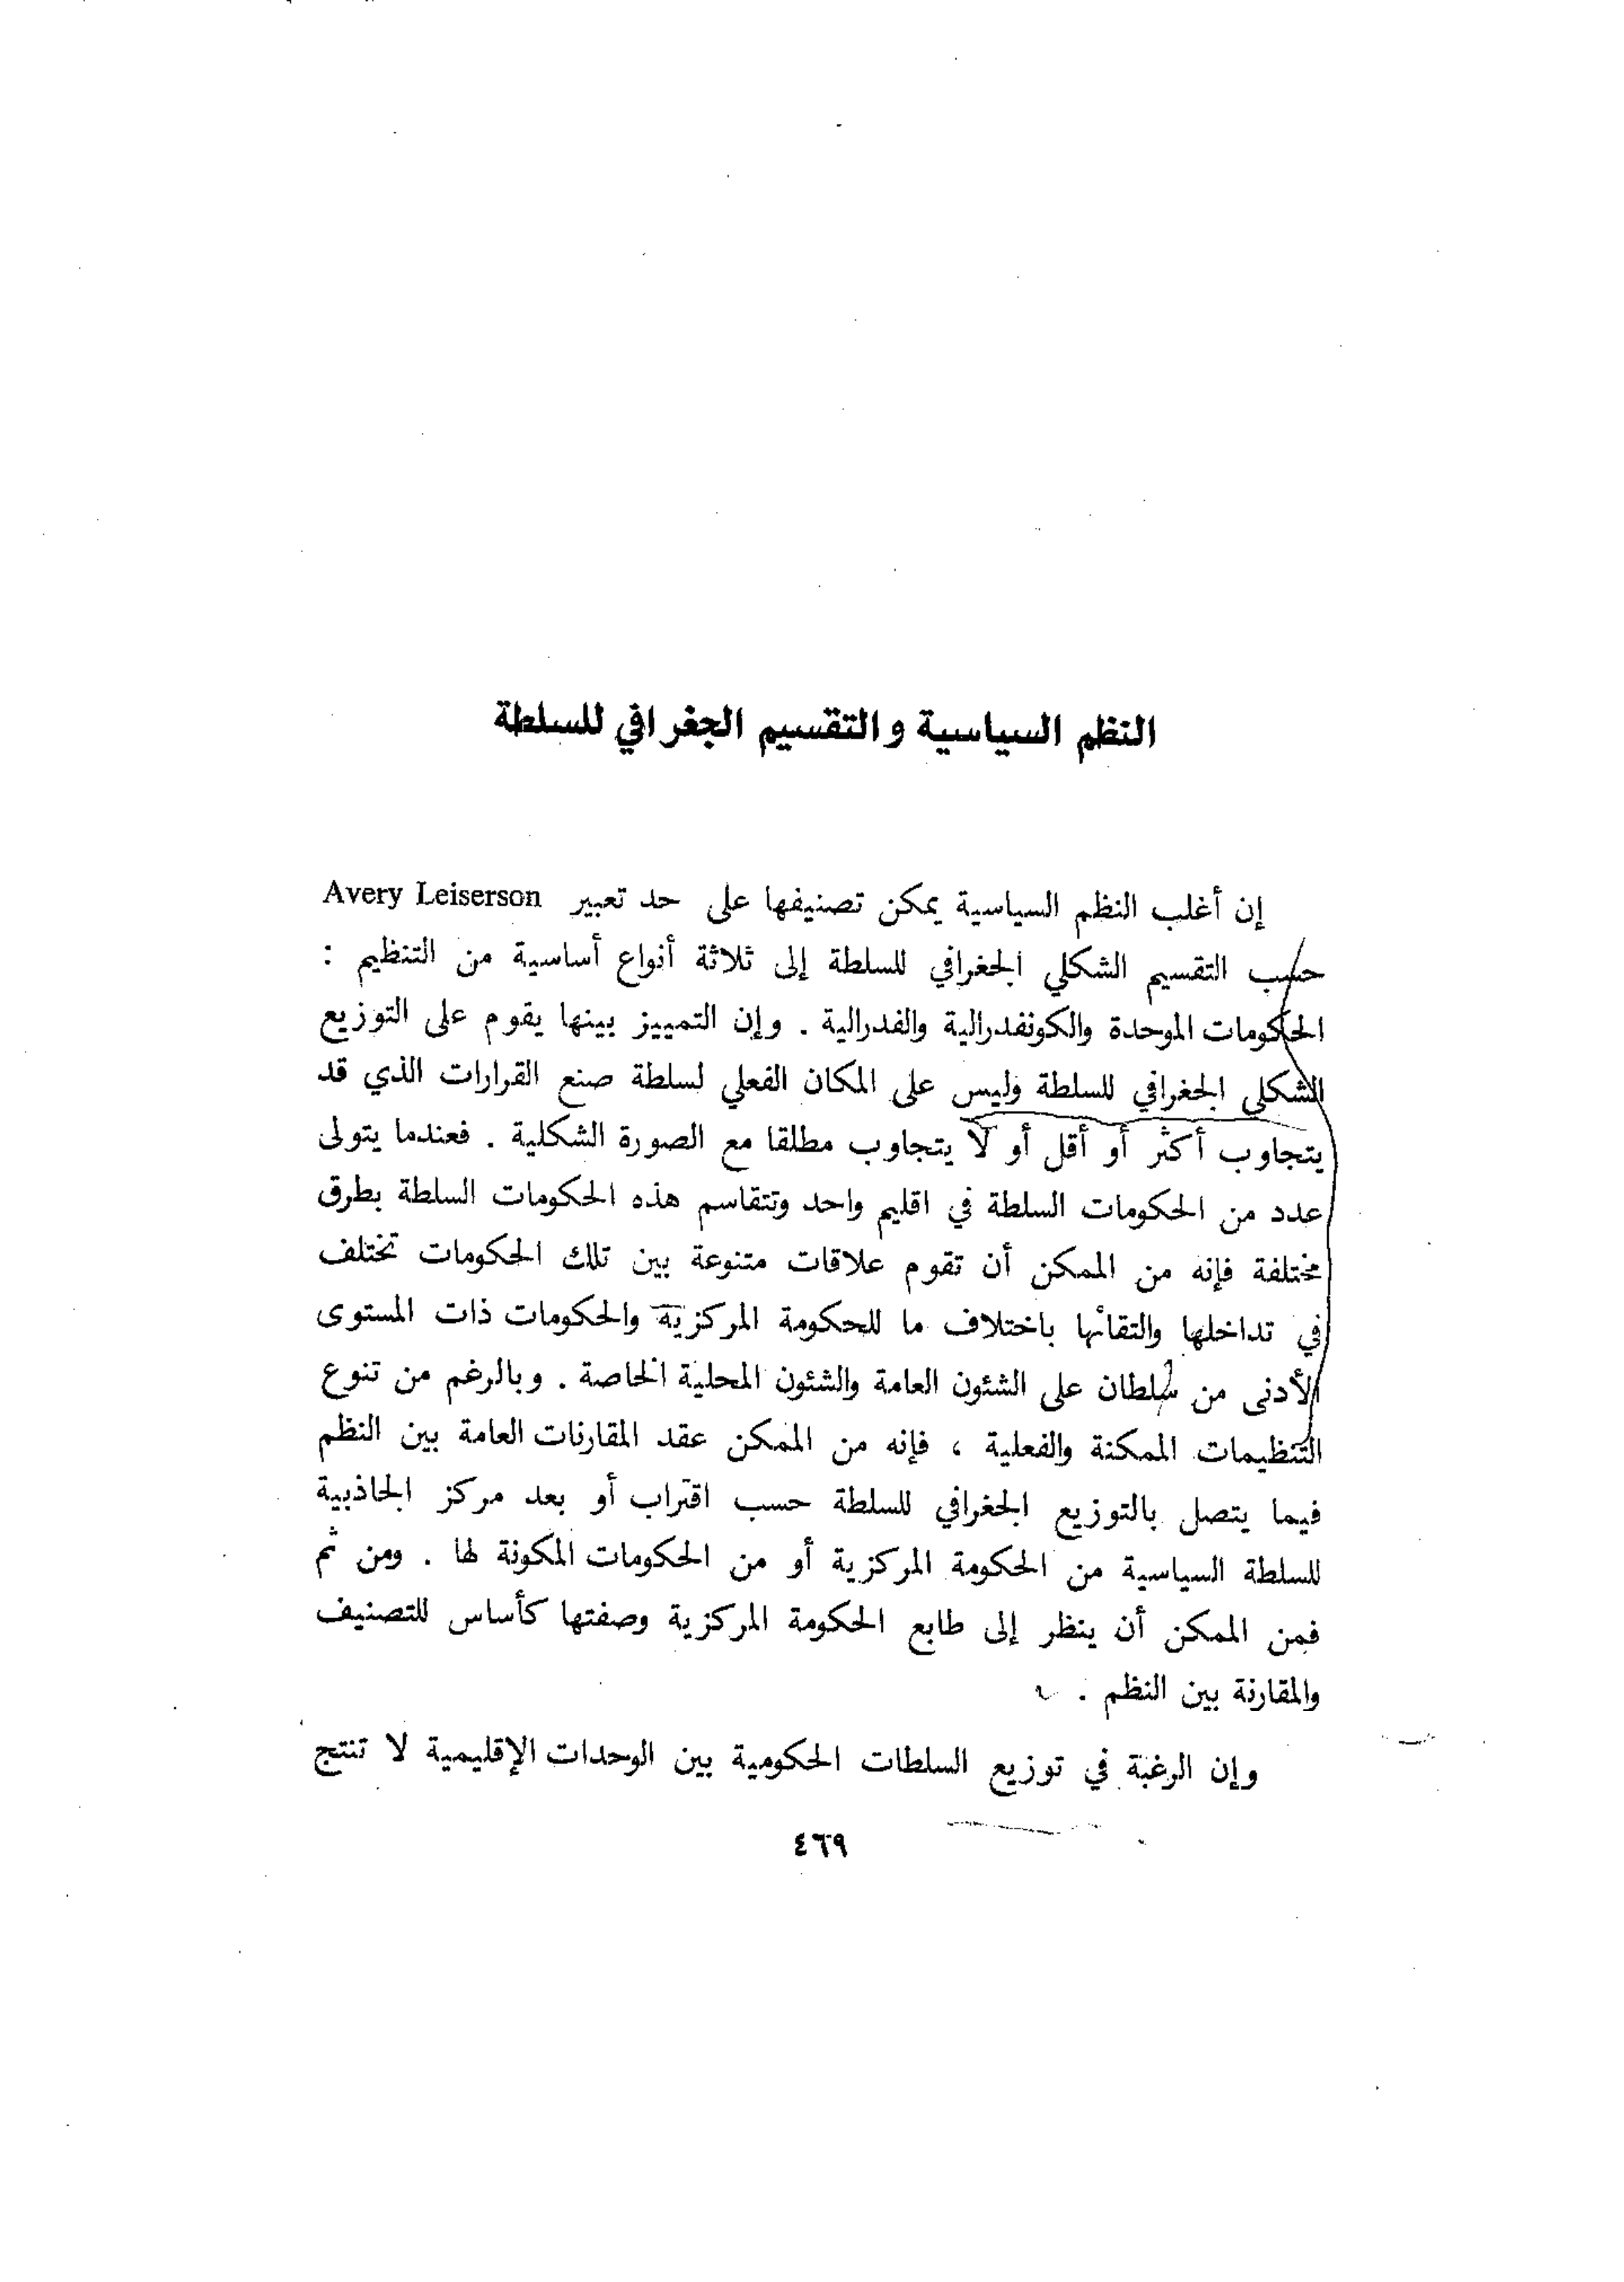 النظم السياسية والتقسيم الجغرافي للسلطة
إن أغلب النظم السياسية يمكن تصنيفها على حد تعبير Avery Leiserson
حسب التقسيم الشكلي الجغرافي للسلطة إلى ثلاثة أنواع أساسية من التنظيم :
الحكومات الموحدة والكونفدرالية والفدرالية . وإن التمييز بينها يقوم على التوزيع
الشكلي الجغرافي للسلطة وليس على المكان الفعلي لسلطة صنع القرارات الذي قد
يتجاوب أكثر أو أقل أو لا يتجاوب مطلقا مع الصورة الشكلية . فعندما يتولى
عدد من الحكومات السلطة في اقليم واحد وتتقاسم هذه الحكومات السلطة بطرق
مختلفة فإنه من الممكن أن تقوم علاقات متنوعة بين تلك الحكومات تختلف
في تداخلها والتقائها باختلاف ما للحكومة المركزية والحكومات ذات المستوى
الأدنى من سلطان على الشئون العامة والشئون المحلية الخاصة . وبالرغم من تنوع
التنظيمات الممكنة والفعلية ، فإنه من الممكن عقد المقارنات العامة بين النظم
فيما يتصل بالتوزيع الجغرافي للسلطة حسب اقتراب أو بعد مركز الجاذبية
للسلطة السياسية من الحكومة المركزية أو من الحكومات المكونة لها . ومن ثم
فمن الممكن أن ينظر إلى طابع الحكومة المركزية وصفتها كأساس للتصنيف
والمقارنة بين النظم .
وإن الرغبة في توزيع السلطات الحكومية بين الوحدات الإقليمية لا تنتج
٤٦٩